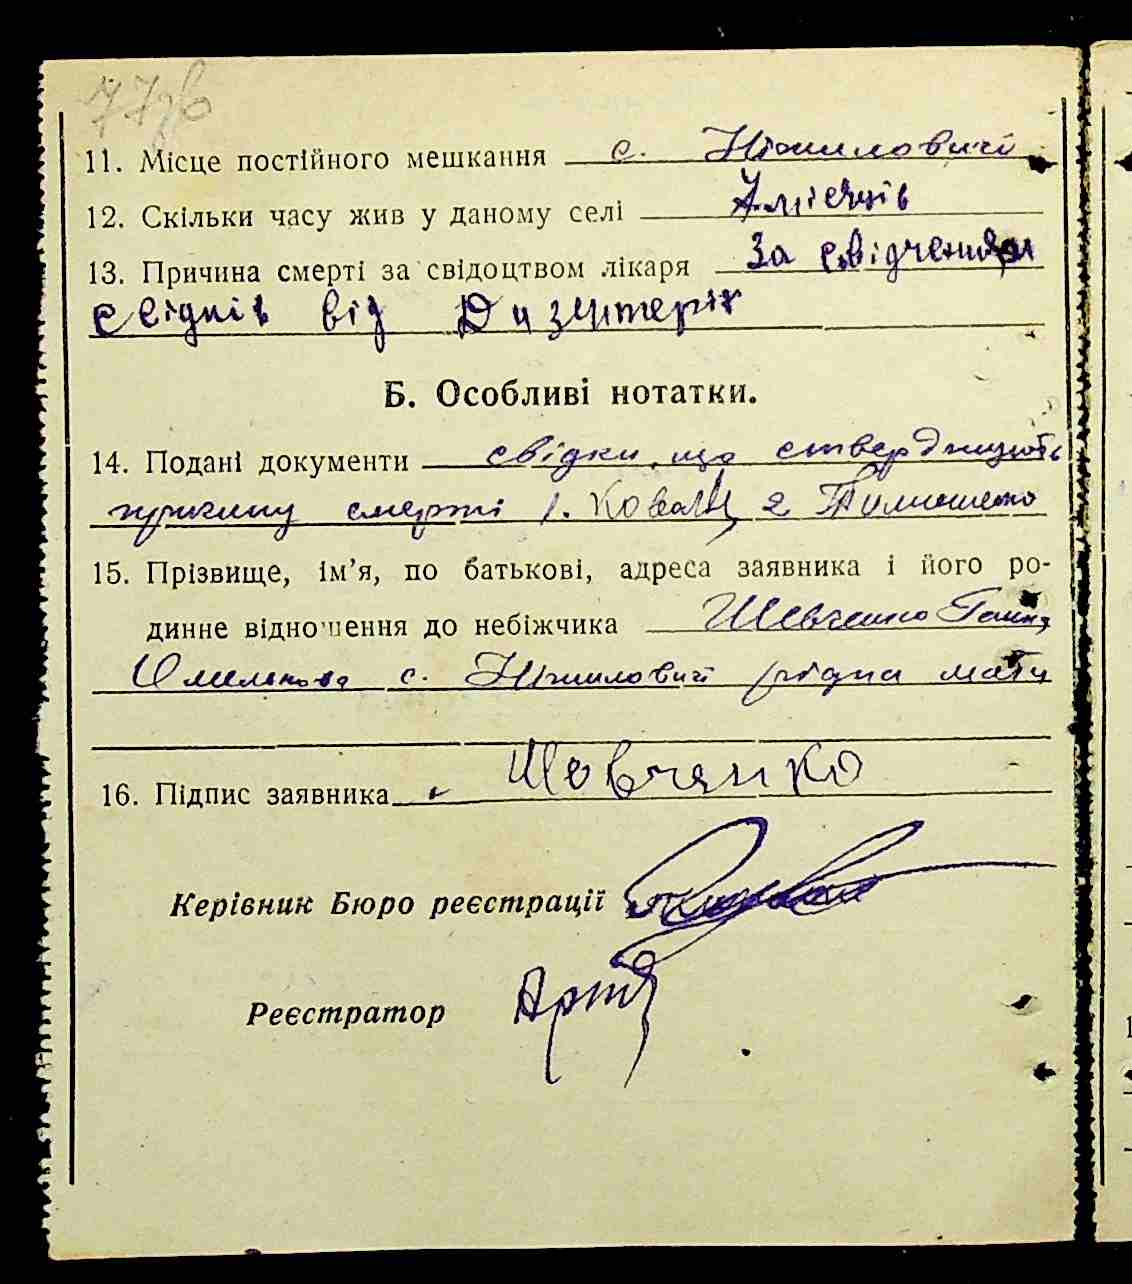 77зв
11. Місце постійного мешкання с. Ніжиловичі
12. Скільки часу жив у даному селі 7 місяців
13. Причина смерті за свідоцтвом лікаря За свідченням
свідків від Дизентерії
Б. Особливі нотатки.
14. Подані документи свідки, що стверджують
причину смерті 1. Коваль 2
15. Прізвище, ім’я, по батькові, адреса заявника і його ро-
динне відношення до небіжчика Шевченко Ганна
Омелянова с. Ніжиловичі рідна мати
16. Підпис заявника Шевченко
Керівник Бюро реєстрації
Реєстратор